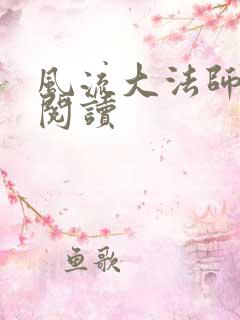 風流大法師
閱讀
鱼歌